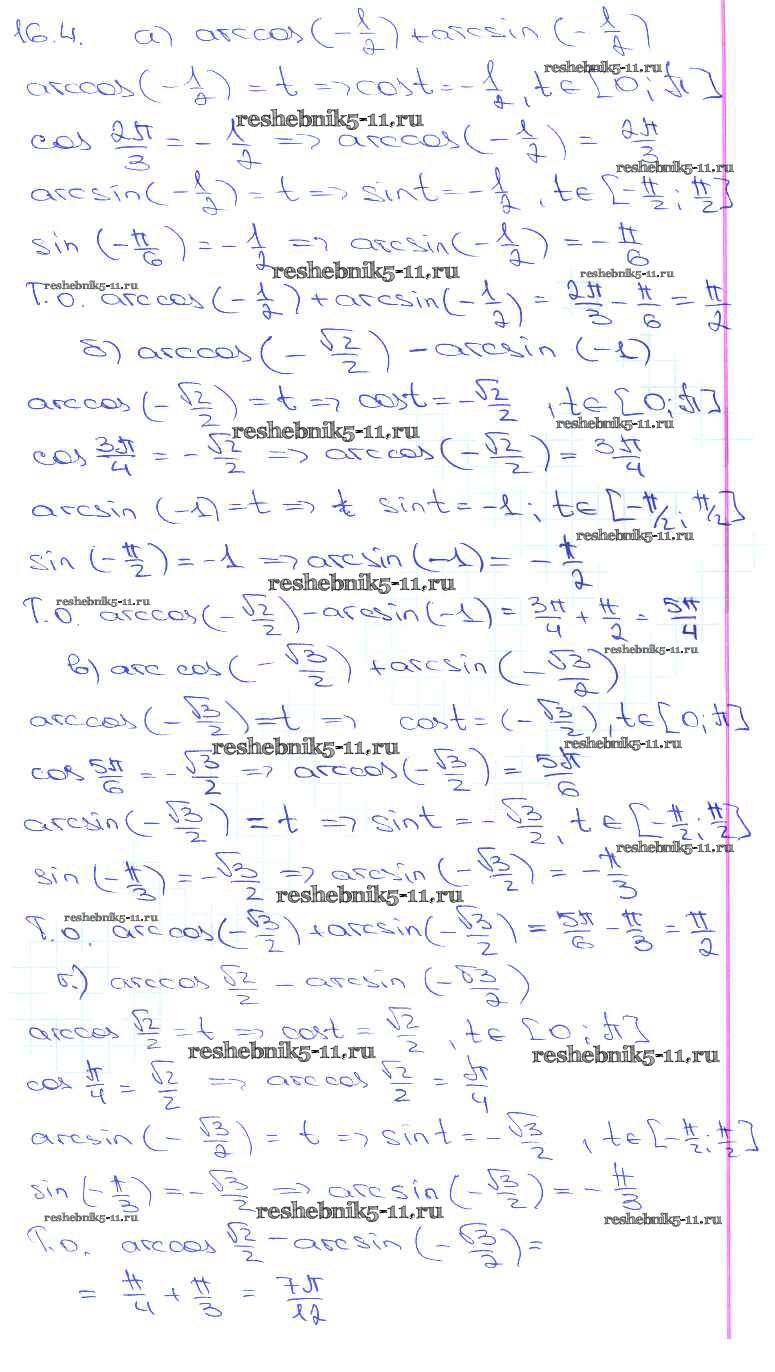 16.4. а) arccos(-1/2)+arcsin(-1/2)
reshebnik5-11.ru
arccos(-1/2)=t => cost=-1/2, t∈[0;π]
reshebnik5-11.ru
cos 2π/3 = -1/2 => arccos(-1/2) = 2π/3
reshebnik5-11.ru
arcsin(-1/2)=t => sint=-1/2, t∈[-π/2;π/2]
sin (-π/6)=-1/2 => arcsin(-1/2)=-π/6
reshebnik5-11.ru reshebnik5-11.ru
reshebnik5-11.ru
Т.о. arccos(-1/2)+arcsin(-1/2)= 2π/3 - π/6 = π/2
б) arccos(-√2/2) - arcsin (-1)
arccos(-√2/2)=t => cost=-√2/2, t∈[0;π]
reshebnik5-11.ru reshebnik5-11.ru
cos 3π/4 = -√2/2 => arccos(-√2/2)= 3π/4
arcsin (-1)=t => t sint=-1; t∈[-π/2;π/2]
reshebnik5-11.ru
sin (-π/2)=-1 => arcsin(-1)= -π/2
reshebnik5-11.ru
reshebnik5-11.ru
Т.о. arccos(-√2/2)-arcsin(-1)= 3π/4 + π/2 = 5π/4
reshebnik5-11.ru
в) arccos(-√3/2) +arcsin(-√3/2)
arccos(-√3/2)=t => cost=(-√3/2), t∈[0;π]
reshebnik5-11.ru reshebnik5-11.ru
cos 5π/6 = -√3/2 => arccos(-√3/2)= 5π/6
arcsin(-√3/2) = t => sint = -√3/2, t∈[-π/2;π/2]
reshebnik5-11.ru
sin (-π/3)=-√3/2 => arcsin(-√3/2)=-π/3
reshebnik5-11.ru
reshebnik5-11.ru
Т.о. arccos(-√3/2)+arcsin(-√3/2) = 5π/6 - π/3 = π/2
г) arccos √2/2 - arcsin (-√3/2)
arccos √2/2 = t => cost = √2/2, t∈[0;π]
reshebnik5-11.ru reshebnik5-11.ru
cos π/4 = √2/2 => arccos √2/2 = π/4
arcsin(-√3/2) = t => sint=-√3/2, t∈[-π/2;π/2]
sin(-π/3) = -√3/2 => arcsin(-√3/2)=-π/3
reshebnik5-11.ru reshebnik5-11.ru reshebnik5-11.ru
Т.о. arccos √2/2 - arcsin(-√3/2)=
= π/4 + π/3 = 7π/12